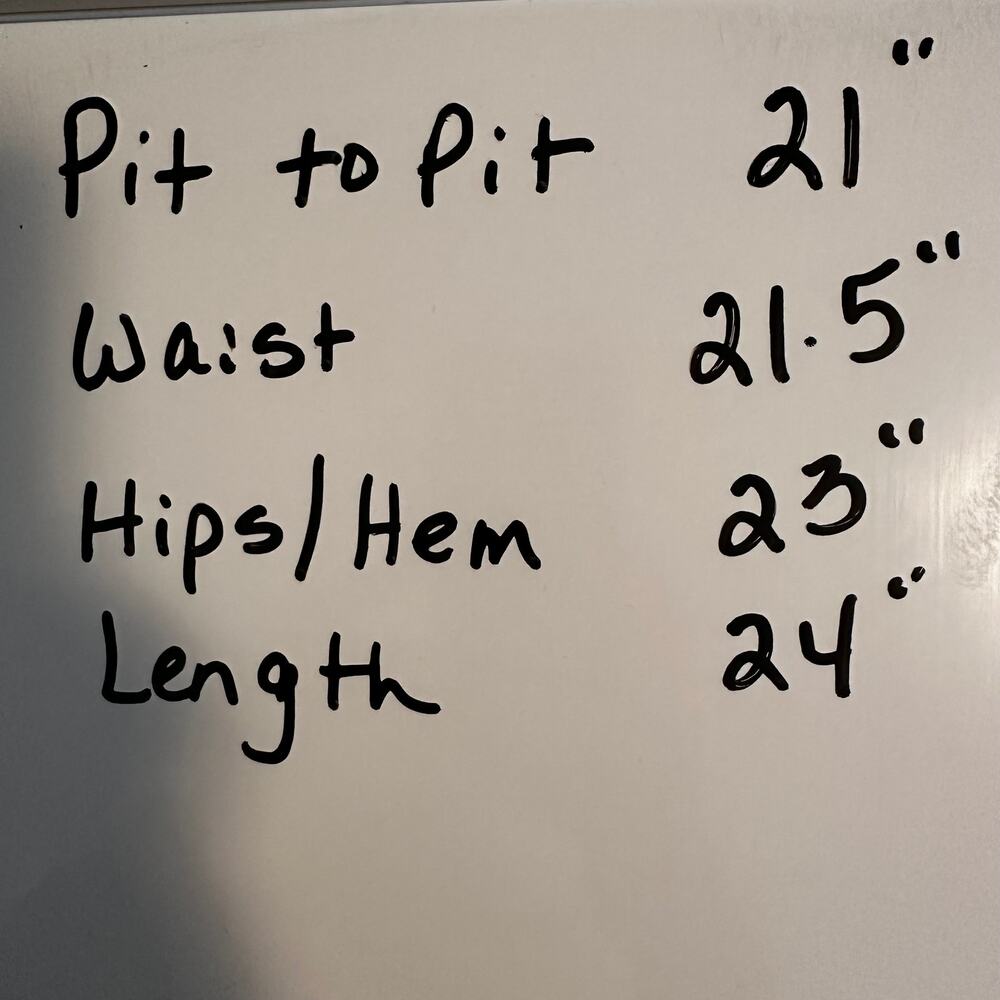 Pit to Pit 21"
Waist 21.5"
Hips/Hem 23"
Length 24"